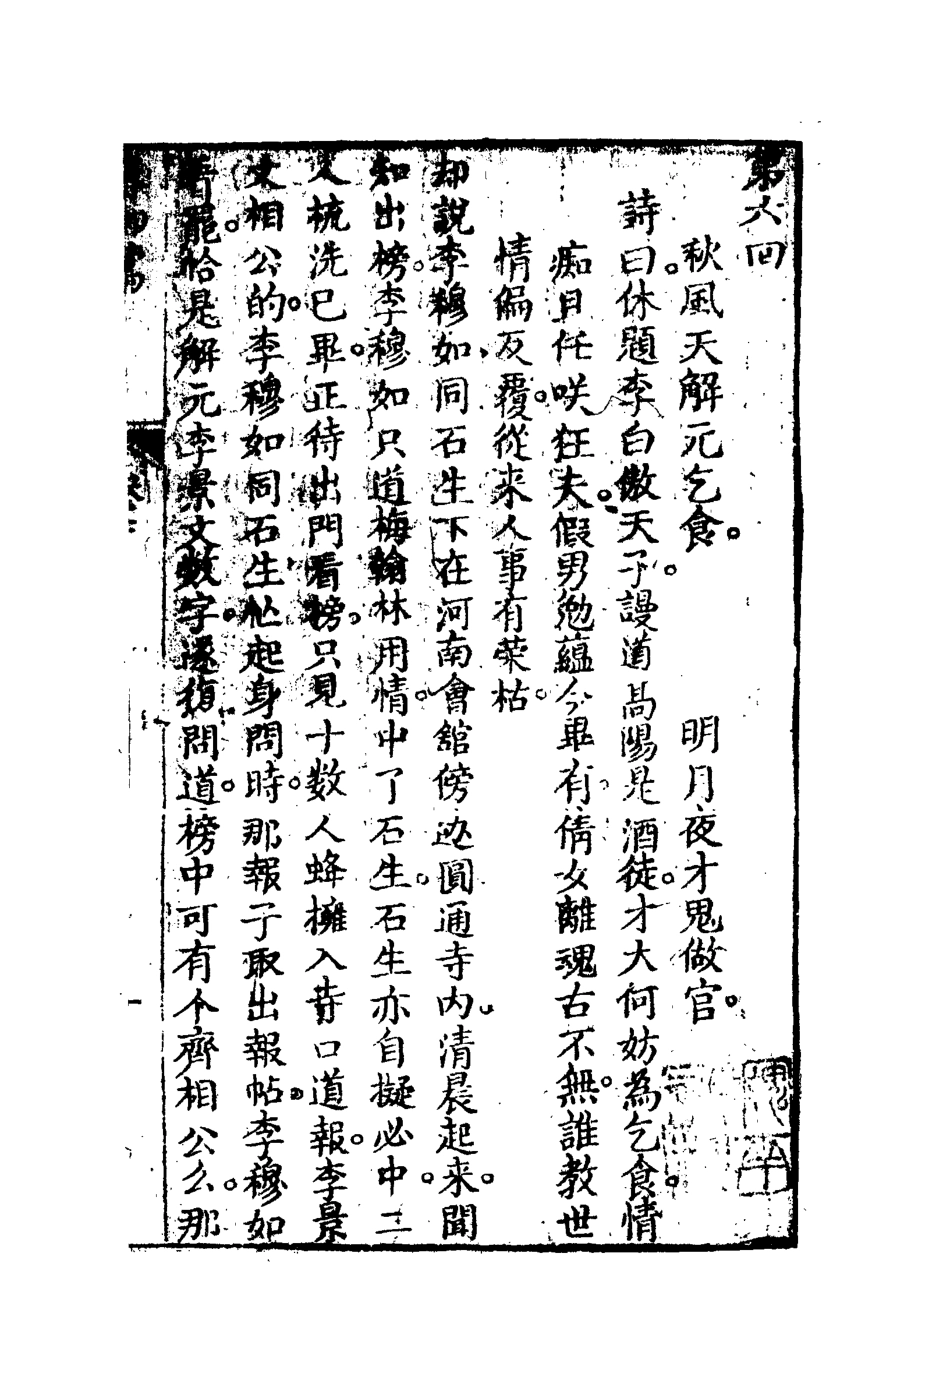 第六回
秋風天解元乞食。　明月夜才鬼做官。
詩曰。休題李白傲天子。謾道高陽是酒徒。才大何妨為乞食。情
痴且任咲狂夫。假男勉蘊今畢有。倩女離魂古不無。誰教世
情偏反覆。從來人事有榮枯。
却說李穆如、同石生下在河南會舘傍边圓通寺内。清晨起来。聞
知出榜。李穆如只道梅翰林用情。中了石生。石生亦自擬必中。二
人梳洗已畢。正待出門看榜。只見十数人蜂擁入寺口道報。李景
文相公的。李穆如同石生忙起身問時。那報子取出報帖。李穆如
看罷。恰是解元李景文数字。遂復問道。榜中可有个齊相公么。那